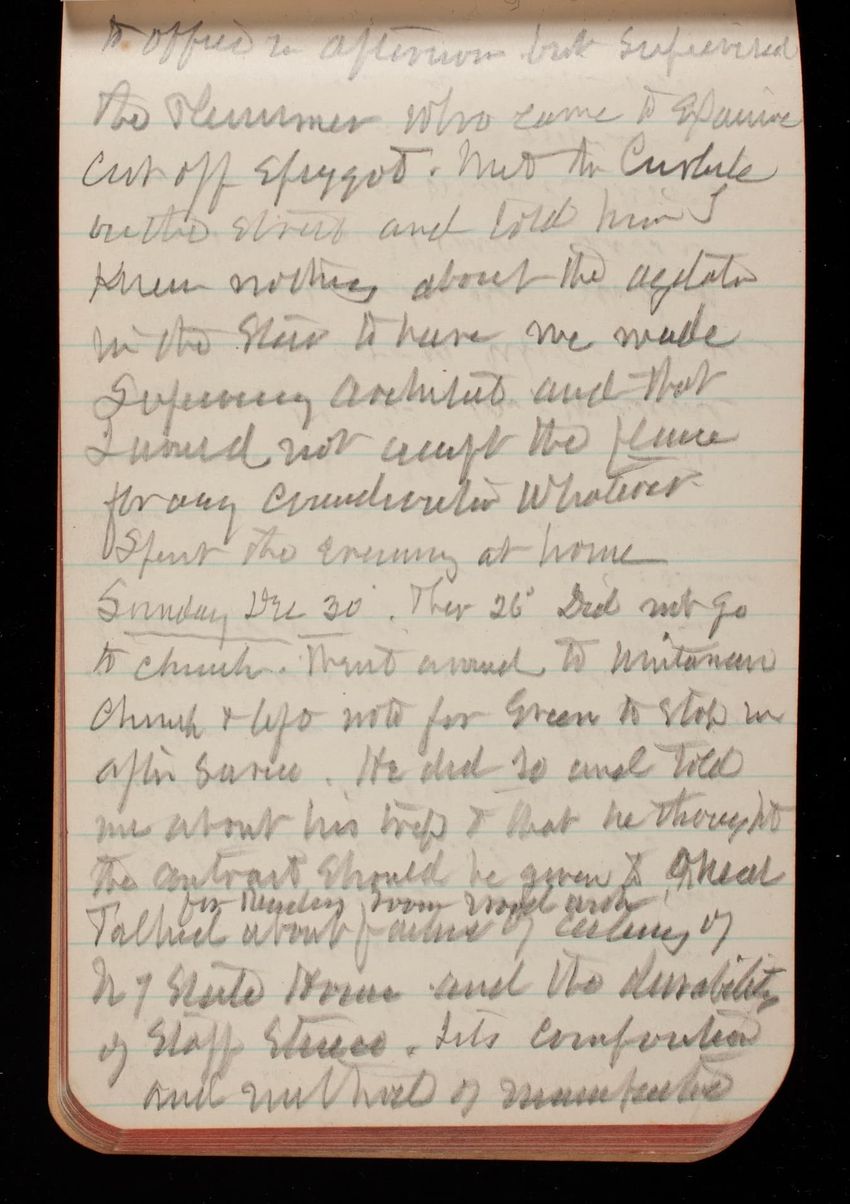 to office in afternoon but supervised
the Plummer who came to examine
cut off spigot. Met Mr
on the street and told him I
knew nothing about the agitation
in the
to have me made
Supervising Architect and that
I would not accept the place
for any consideration whatever
Spent the evening at home
Sunday Dec 30. Ther 26° Did not go
to church. Went around to Unitarian
Church & left note for Green to stop in
after service. He did so and told
me about his trip & that he thought
the contract should be given to
for Reading Room
Talked about failure of ceiling of
N Y State House and the durability
of Staff Stucco. Its composition
and method of manufacture